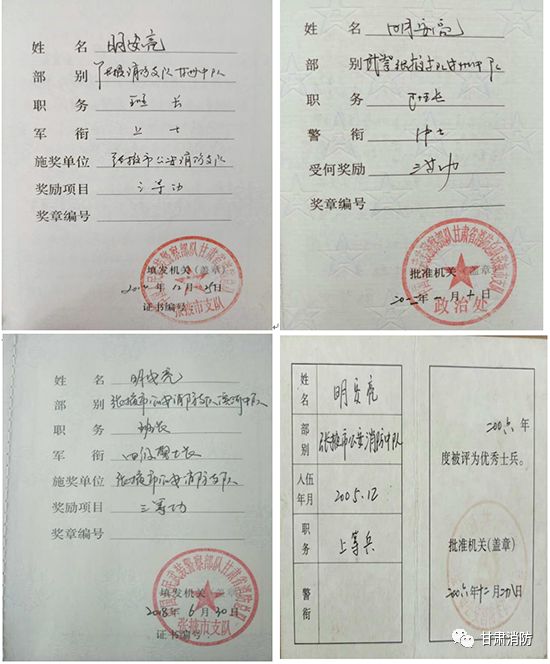 姓 名 明安亮
部 别 张掖消防支队甘州中队
职 务 班长
军 衔 上士
施奖单位 张掖市公安消防支队
奖励项目 三等功
奖章编号
填发机关（盖章）
年12月25日
证书编号：
张掖市支队
姓 名 明安亮
部 别
职 务 班长
警 衔 中士
受何奖励 三等功
奖章编号
批准机关（盖章）
政治处
姓 名 明安亮
部 别 张掖市公安消防支队滨河中队
职 务 班长
军 衔 四级警士长
施奖单位 张掖市公安消防支队
奖励项目 三等功
奖章编号
填发机关（盖章）
2018年6月30日
证书编号：
张掖市支队
姓名 明安亮
部别 张掖市公安消防中队
入伍年月 2005.12
职务 上等兵
警衔
2006年
度被评为优秀士兵。
批准机关(盖章)
2006年十二月二十八日
甘肃消防